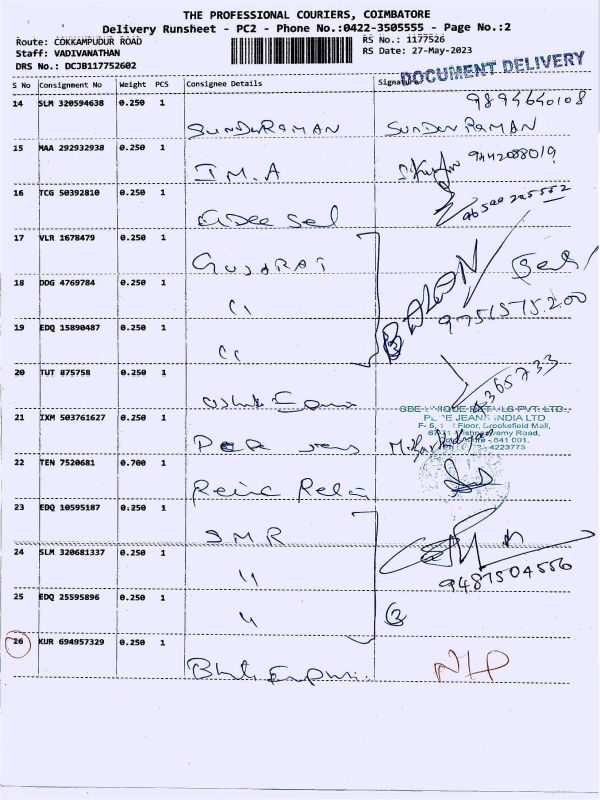 THE PROFESSIONAL COURIERS, COIMBATORE
Delivery Runsheet - PC2 - Phone No.:0422-3505555 - Page No.:2
Route: COKKAMPUDUR ROAD
RS No.: 1177526
Staff: VADIVANATHAN
RS Date: 27-May-2023
DRS No.: DCJB117752602
DOCUMENT DELIVERY
S No Consignment No Weight PCS Consignee Details Signature
9894640108
14 SLM 320594638 0.250 1
SUNDERAMAN SUNDER RAMAN
15 MAA 292932938 0.250 1
9442088019
I M.A
16 TCG 50392810 0.250 1
17 VLR 1678479 0.250 1
GUJARAT
18 DDG 4769784 0.250 1
BALAN
9751575200
19 EDQ 15890487 0.250 1
20 TUT 875758 0.250 1
365733
21 IXM 503761627 0.250 1
PVT. LTD.,
JEANS INDIA LTD
Floor, Brookefield Mall,
Road,
641 001.
4223773
22 TEN 7520681 0.700 1
23 EDQ 10595187 0.250 1
SMR
24 SLM 320681337 0.250 1
"
9487504556
25 EDQ 25595896 0.250 1
"
3
26 KUR 694957329 0.250 1